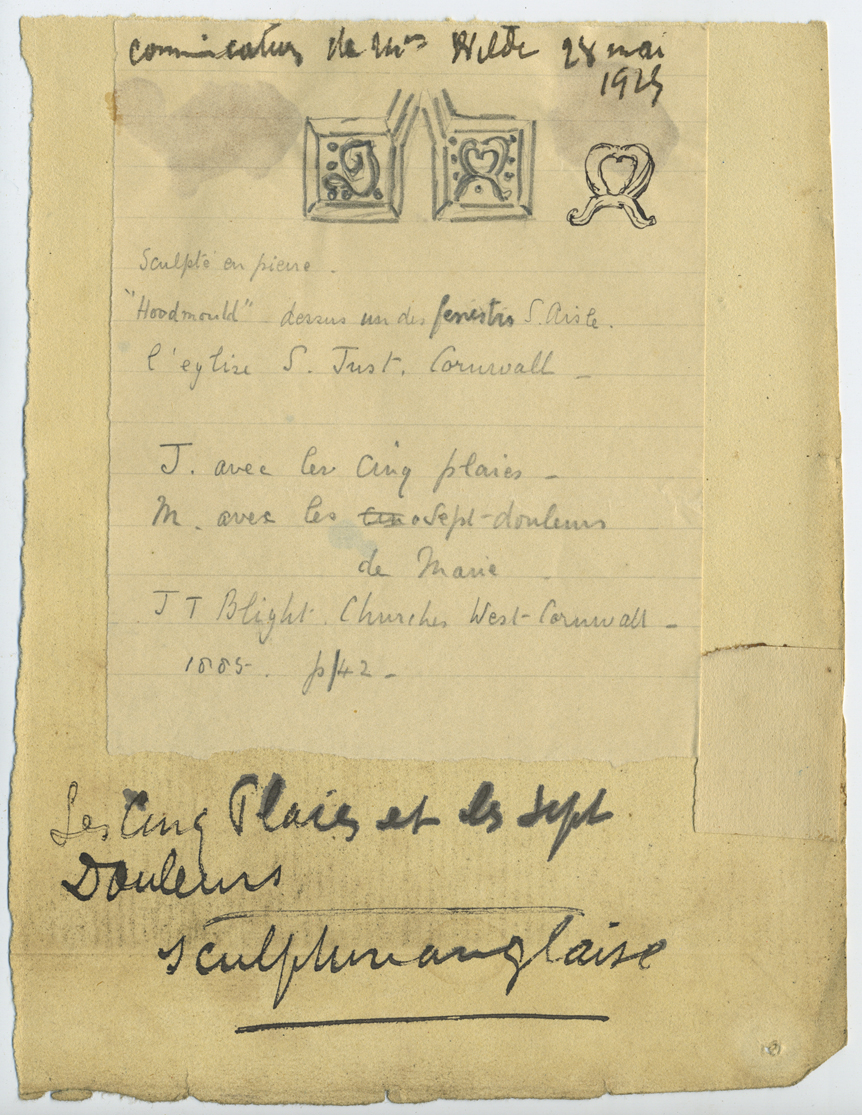 communication de Mrs Wilde 28 mai
1925
Sculpté en pierre.
"Hoodmould" dessus un des fenestres S. Aisle.
l'eglise S. Just. Cornwall –
J. avec les Cinq plaies –
M. avec les Sept-douleurs
de Marie –
J T Blight. Churches West-Cornwall –
1885. p/42 –
Les Cinq Plaies et les Sept
Douleurs
Sculpture anglaise